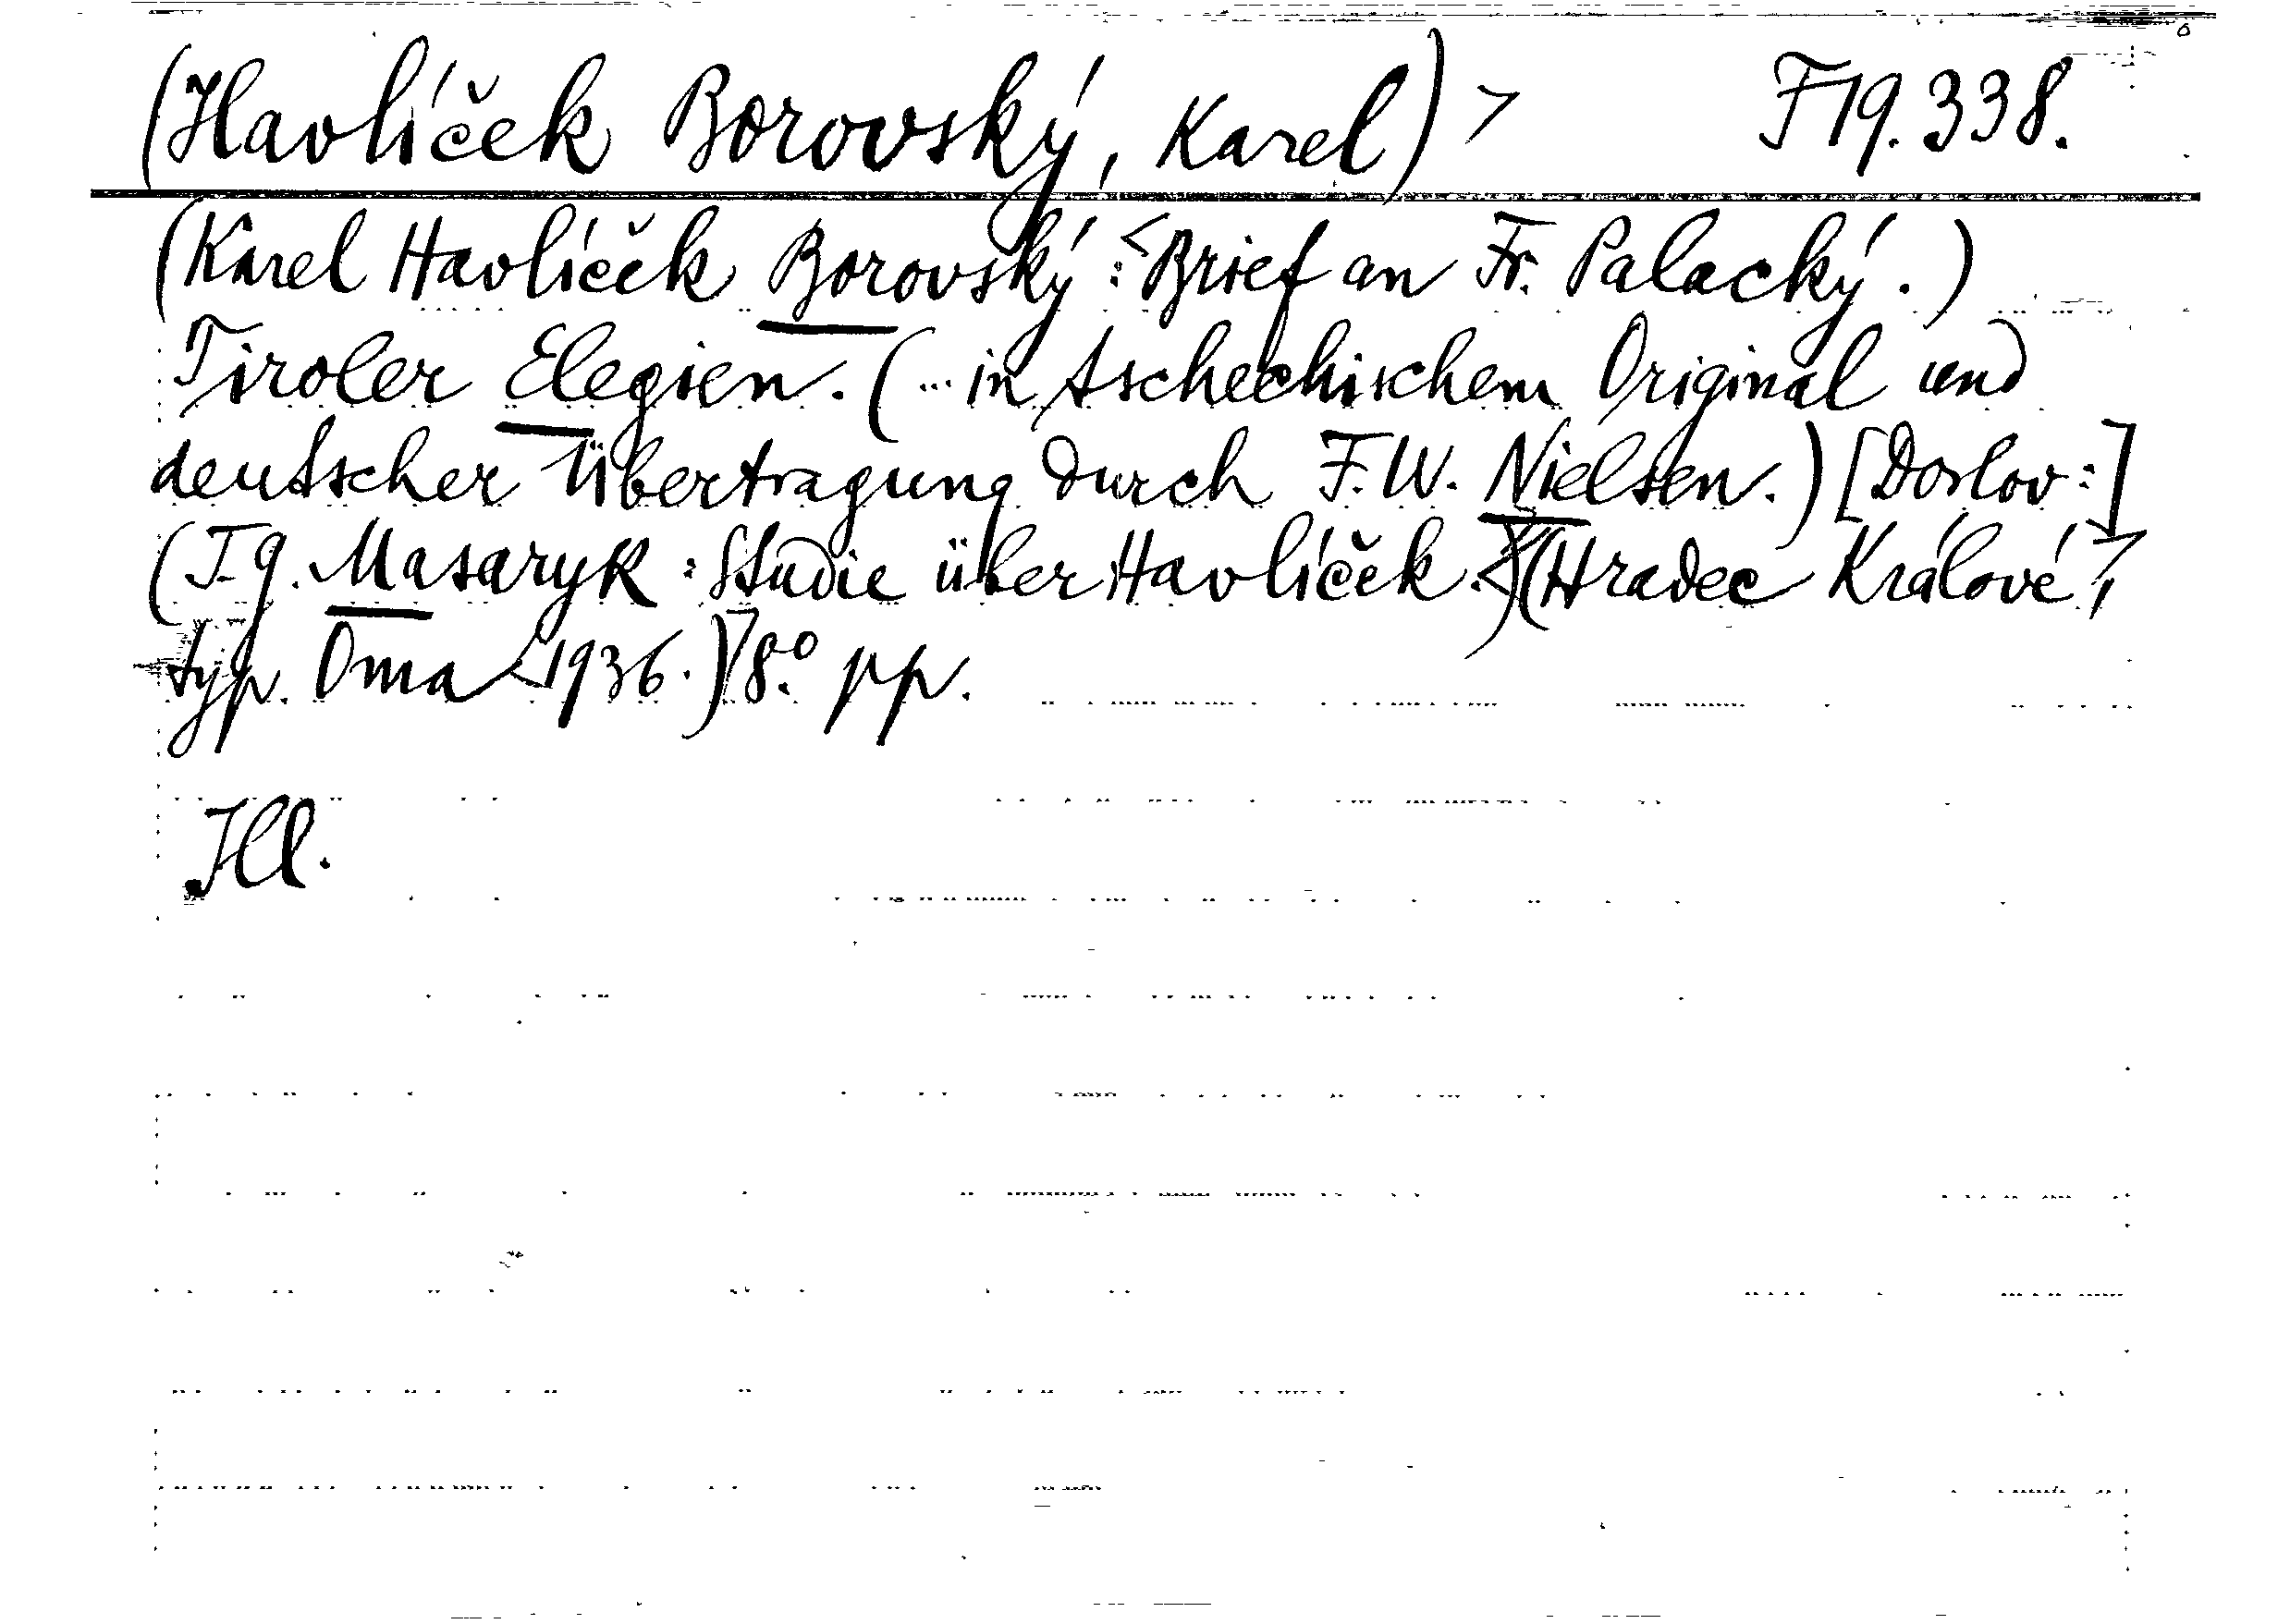 (Havlíček Borovský, Karel) > F 19.338.
(Karel Havlíček Borovský: <Brief an Fr. Palacký.)
Tiroler Elegien. (... in tschechischem Original und
deutscher Übertragung durch F. W. Nielsen.) [Doslov:]
(T. G. Masaryk: Studie über Havlíček.) <(Hradec Králové>,
typ. Oma <1936.)> 8.° pp.
Ill.